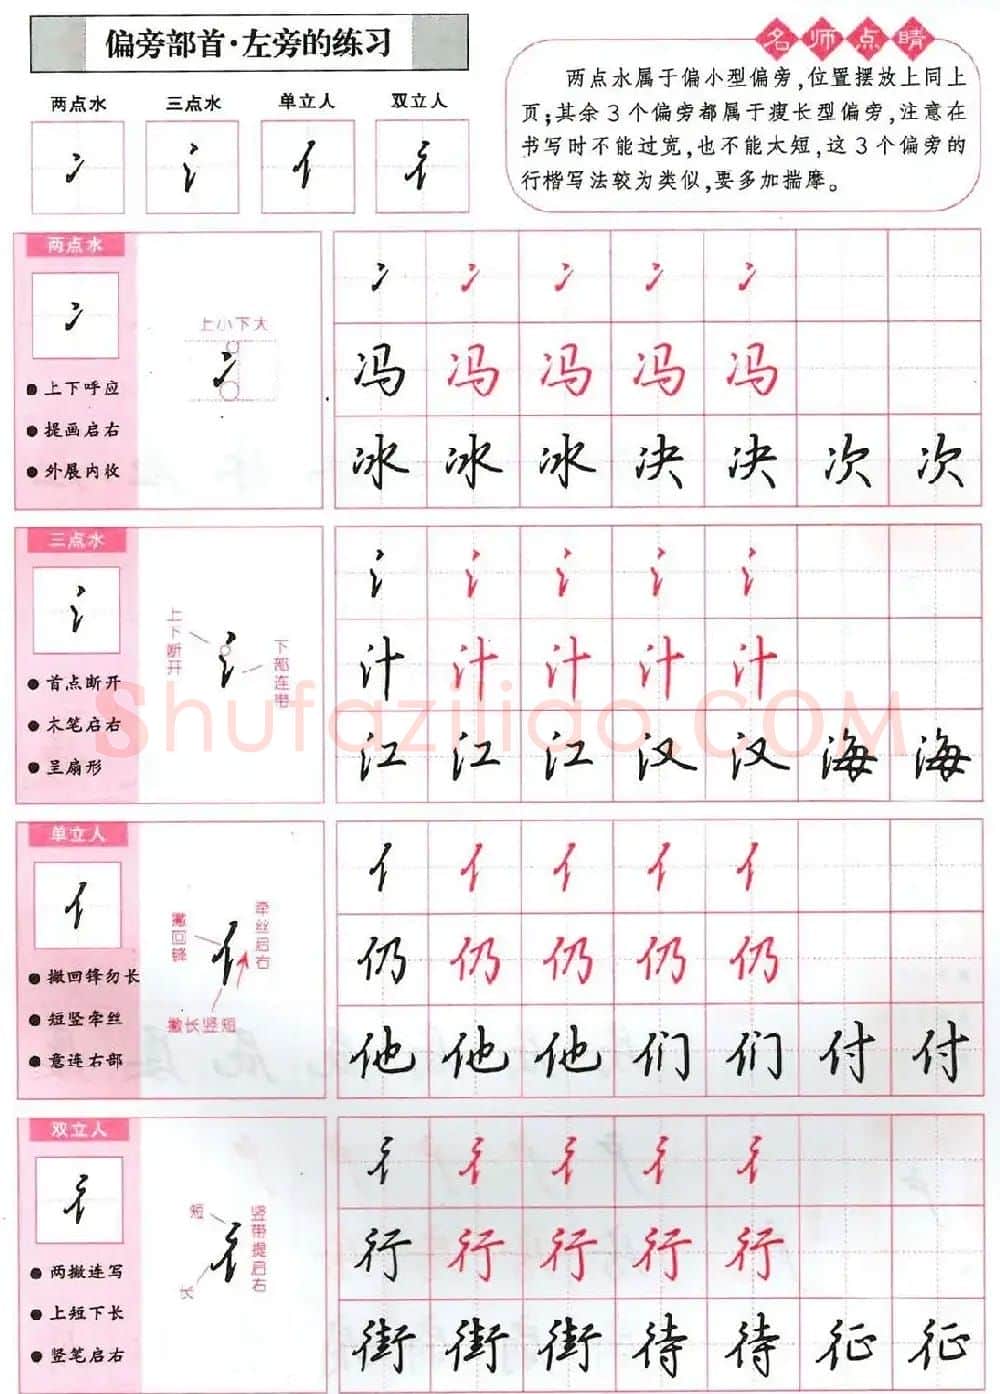 偏旁部首·左旁的练习
名师点睛
两点水属于偏小型偏旁,位置摆放上同上
页;其余3个偏旁都属于瘦长型偏旁,注意在
书写时不能过宽,也不能太短,这3个偏旁的
行楷写法较为类似,要多加揣摩。
两点水 三点水 单立人 双立人
冫 氵 亻 彳
两点水
冫
上下呼应
提画启右
外展内收
上小下大
冫
冫 冫 冫 冫 冫
冯 冯 冯 冯 冯
冰 冰 冰 决 决 次 次
三点水
氵
首点断开
末笔启右
呈扇形
上下断开
氵
下部连带
氵 氵 氵 氵 氵
汁 汁 汁 汁 汁
江 江 江 汉 汉 海 海
Shufaziliao.COM
单立人
亻
撇回锋勿长
短竖牵丝
意连右部
撇回锋
亻
牵丝启右
撇长竖短
亻 亻 亻 亻 亻
仍 仍 仍 仍 仍
他 他 他 们 们 付 付
双立人
彳
两撇连写
上短下长
竖笔启右
短
彳
竖带提启右
长
彳 彳 彳 彳 彳
行 行 行 行 行
街 街 街 待 待 征 征